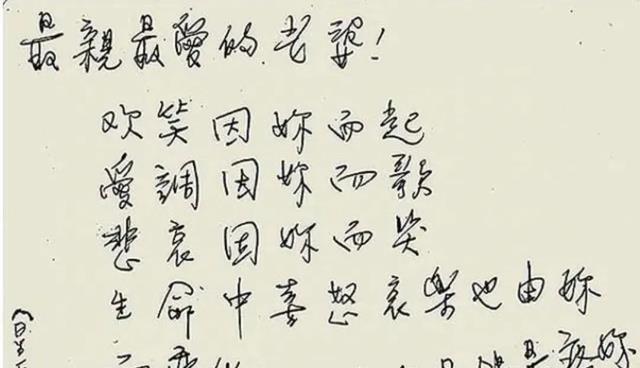 最親最愛的老婆!
欢笑因妳而起
愛調因妳而歌
悲哀因妳而哭
生命中喜怒哀樂也由妳